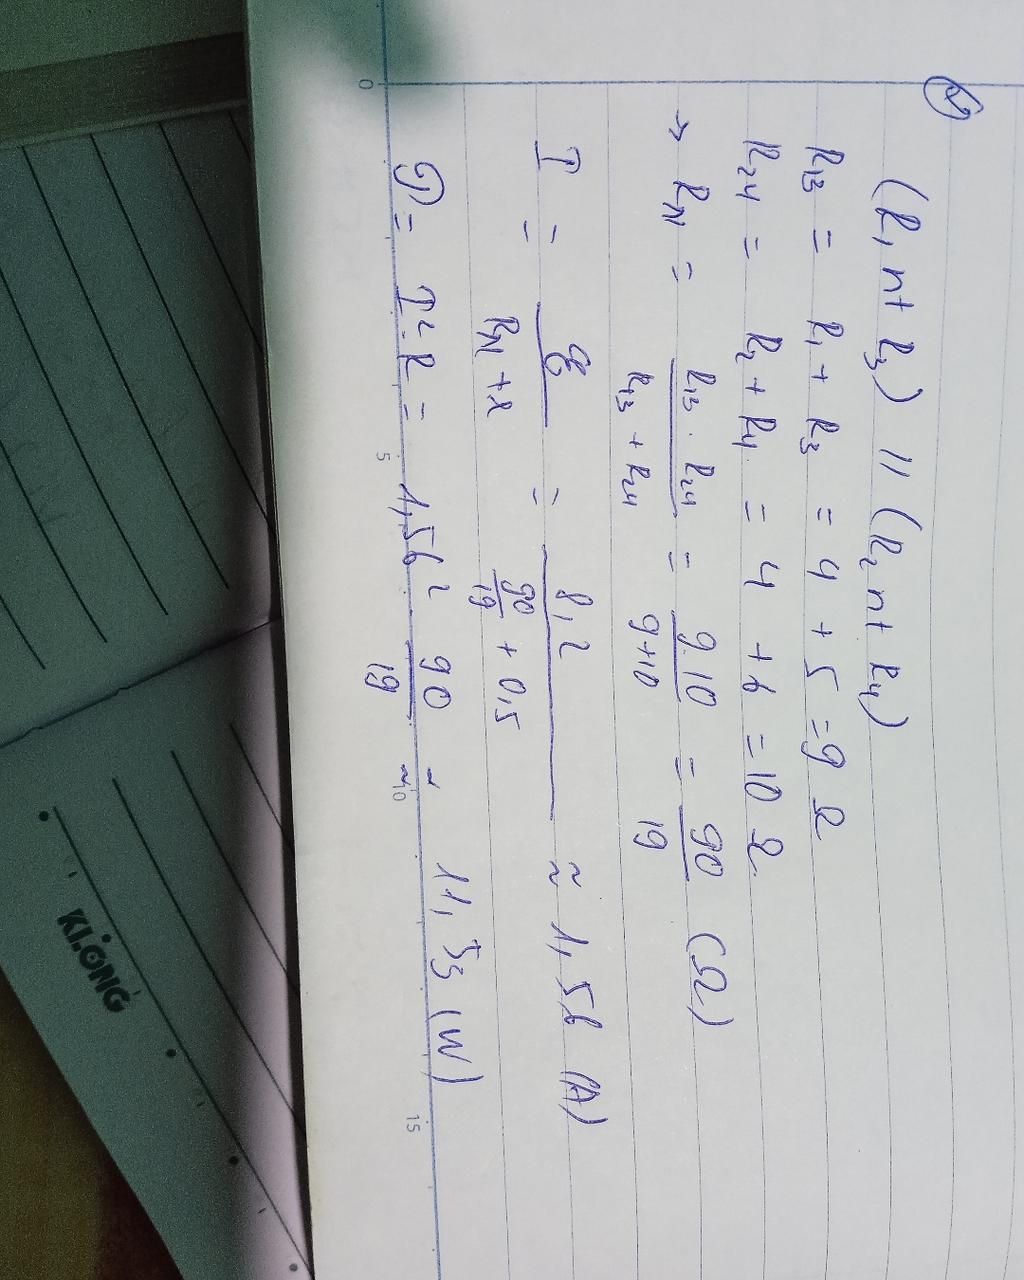 (R₁ nt R₃) // (R₂ nt R₄)
R₁₃ = R₁ + R₃ = 4 + 5 = 9 Ω
R₂₄ = R₂ + R₄ = 4 + 6 = 10 Ω
→ R_N = \frac{R₁₃ . R₂₄}{R₁₃ + R₂₄} = \frac{9.10}{9+10} = \frac{90}{19} (Ω)
I = \frac{ℰ}{R_N + r} = \frac{8,2}{\frac{90}{19} + 0,5} ≈ 1,56 (A)
P = I² . R = 1,56² \frac{90}{19} ≈ 11,53 (W)
0 5 10 15
KLONG